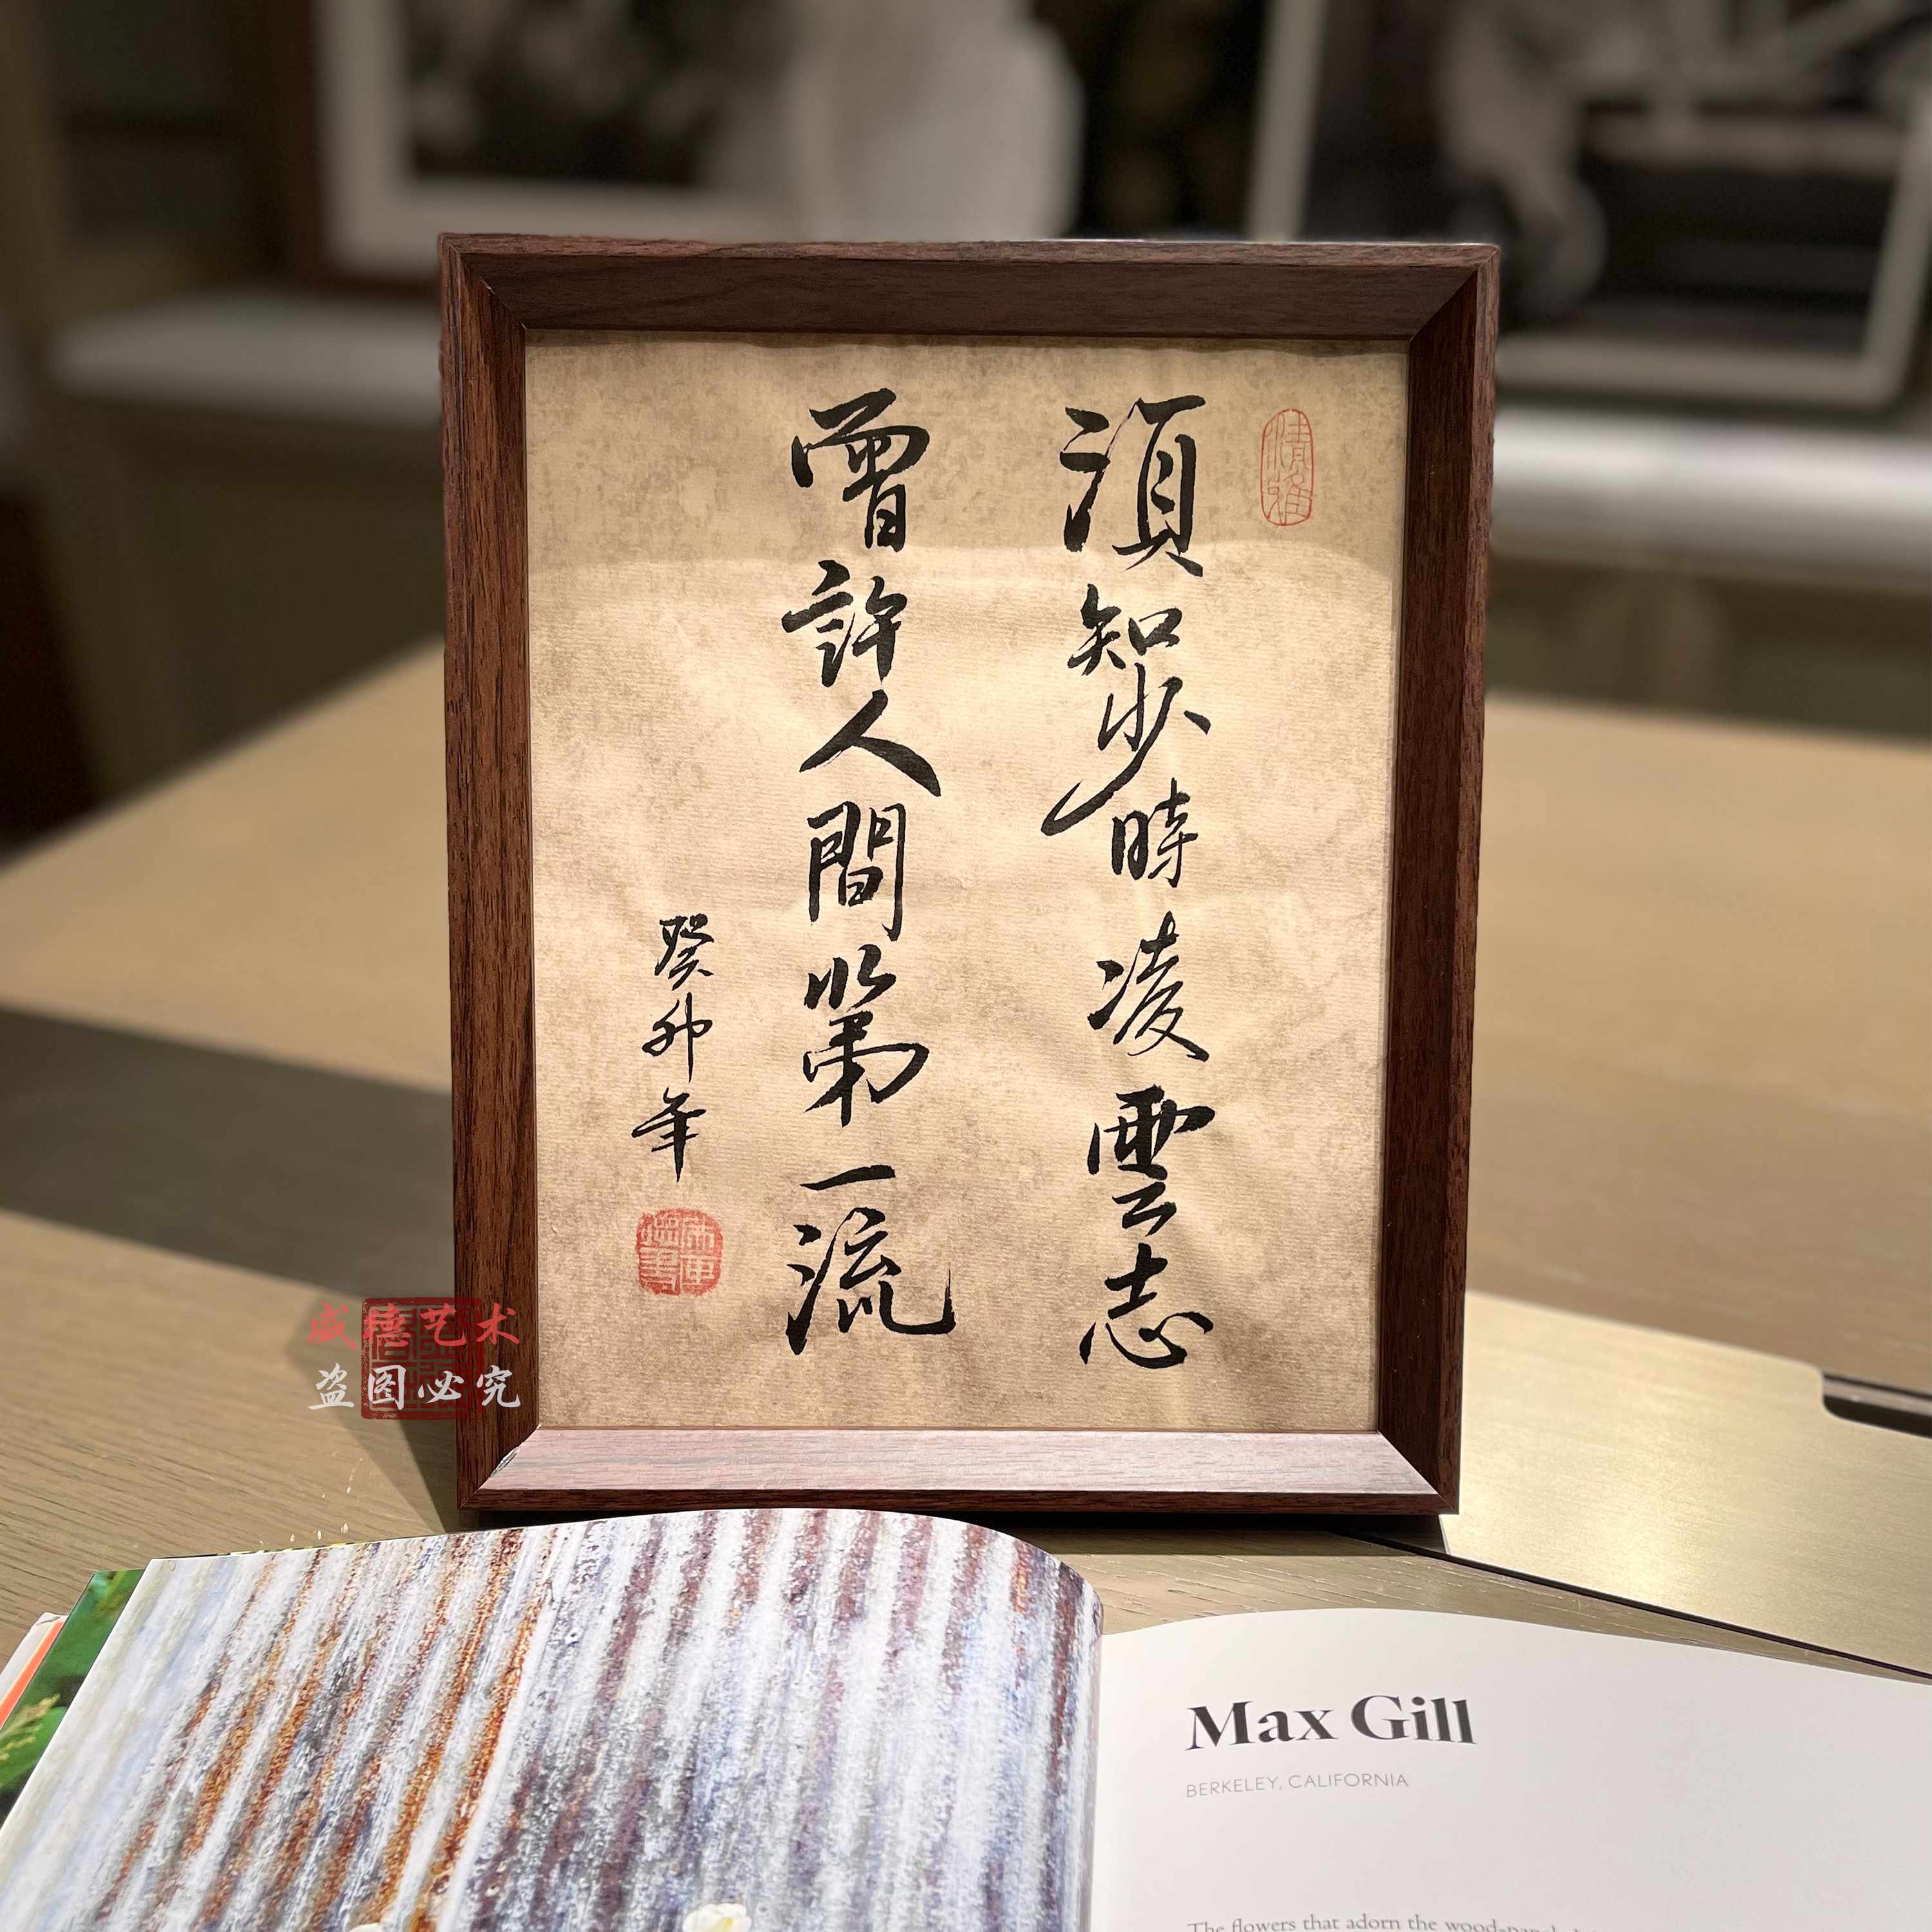 須知少時凌雲志
曾許人間第一流
癸卯年
清雅
威德艺术
盗图必究
Max Gill
BERKELEY, CALIFORNIA
The flowers that adorn the